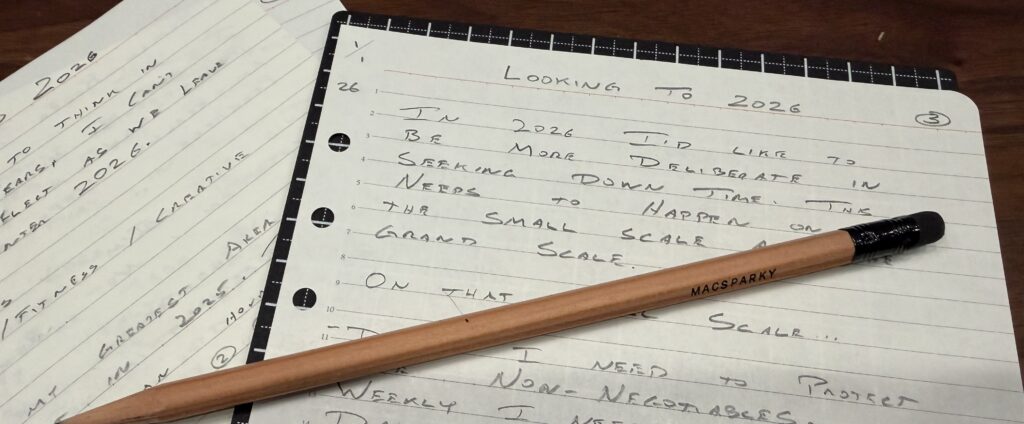 2026
TO THINK IN
EARS, I CAN'T
FLECT AS WE LEAVE
ENTER 2026.
/ CREATIVE
/FITNESS
MY GREATEST
IN 2025.
2
1/1
26
LOOKING TO 2026
3
IN 2026 I'D LIKE TO
BE MORE DELIBERATE IN
SEEKING DOWN TIME.
NEEDS TO HAPPEN ON
THE SMALL SCALE
GRAND SCALE.
ON THAT
SCALE...
I NEED TO PROTECT
NON-NEGOTIABLES.
WEEKLY I
MACSPARKY
1
2
3
4
5
6
7
8
9
10
11